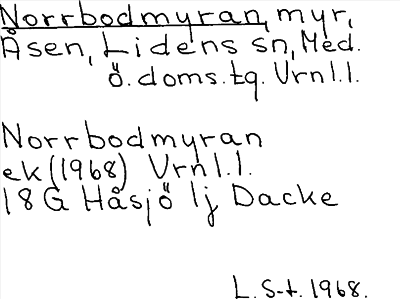 Norrbodmyran, myr,
Åsen, Lidens sn, Med.
ö. doms. tg. Vrnl.l.
Norrbodmyran
ek (1968) Vrnl.l.
18G Håsjö lj Dacke
L. S-t. 1968.